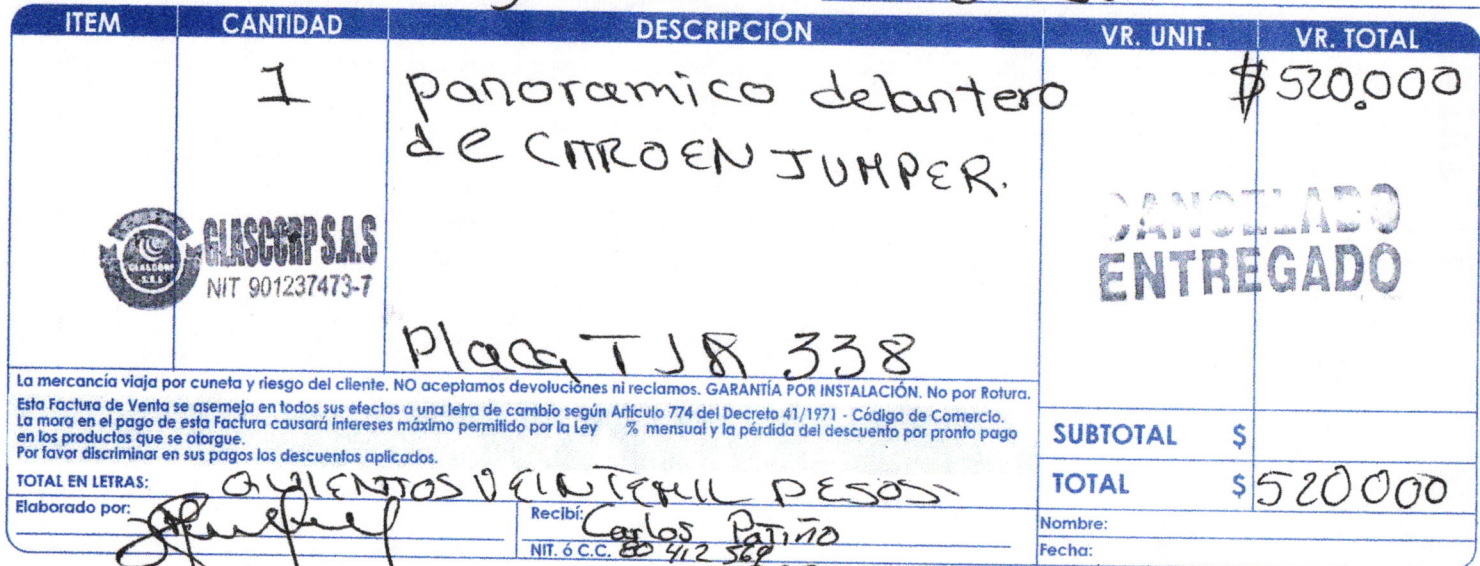 ITEM CANTIDAD DESCRIPCIÓN VR. UNIT. VR. TOTAL
1 panoramico delantero $520.000
de CITROEN JUMPER.
CANCELADO
ENTREGADO
GLASCORP S.A.S
NIT 901237473-7
GLASCORP
S.A.S
Placa TJR 338
La mercancía viaja por cuneta y riesgo del cliente. NO aceptamos devoluciones ni reclamos. GARANTÍA POR INSTALACIÓN. No por Rotura.
Esta Factura de Venta se asemeja en todos sus efectos a una letra de cambio según Artículo 774 del Decreto 41/1971 - Código de Comercio.
La mora en el pago de esta Factura causará intereses máximo permitido por la Ley % mensual y la pérdida del descuento por pronto pago
en los productos que se otorgue.
Por favor discriminar en sus pagos los descuentos aplicados.
SUBTOTAL $
TOTAL EN LETRAS: QUIENTOS VEINTEMIL PESOS
TOTAL $520000
Elaborado por:
Recibí: Carlos Patiño
NIT. ó C.C. 80 412 569
Nombre:
Fecha: